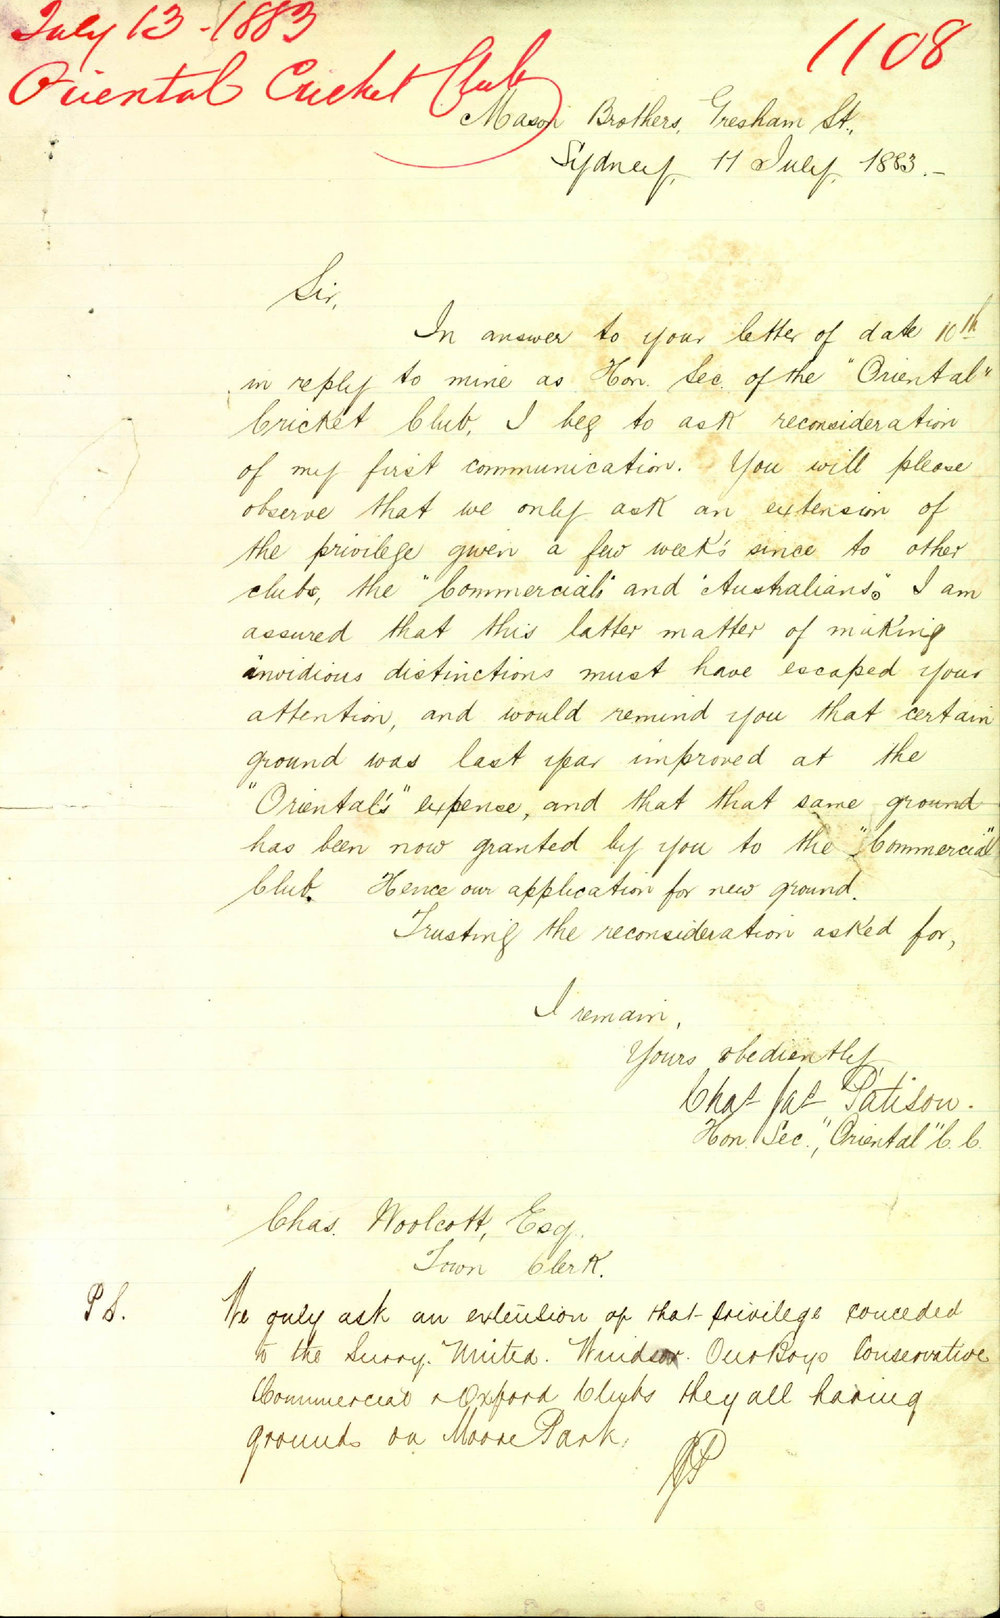 July 13 - 1883
Oriental Cricket Club
1108
Mason Brothers, Gresham St.,
Sydney, 11 July, 1883.-
Sir,
In answer to your letter of date 10th
in reply to mine as Hon. Sec. of the "Oriental"
Cricket Club, I beg to ask reconsideration
of my first communication. You will please
observe that we only ask an extension of
the privilege given a few week's since to other
clubs, the "Commercials" and "Australians". I am
assured that this latter matter of making
invidious distinctions must have escaped your
attention, and would remind you that certain
ground was last year improved at the
"Oriental's" expense, and that that same ground
has been now granted by you to the "Commercial"
Club. Hence our application for new ground.
Trusting the reconsideration asked for,
I remain,
Yours obediently
Chas Jas Patison.
Hon. Sec., "Oriental" C.C.
Chas. Woolcott, Esq.
Town Clerk.
P S. We only ask an extension of that privilege conceded
to the Surry. United. Windsor. Our Boys Conservative
Commercial & Oxford Clubs they all having
grounds on Moore Park.